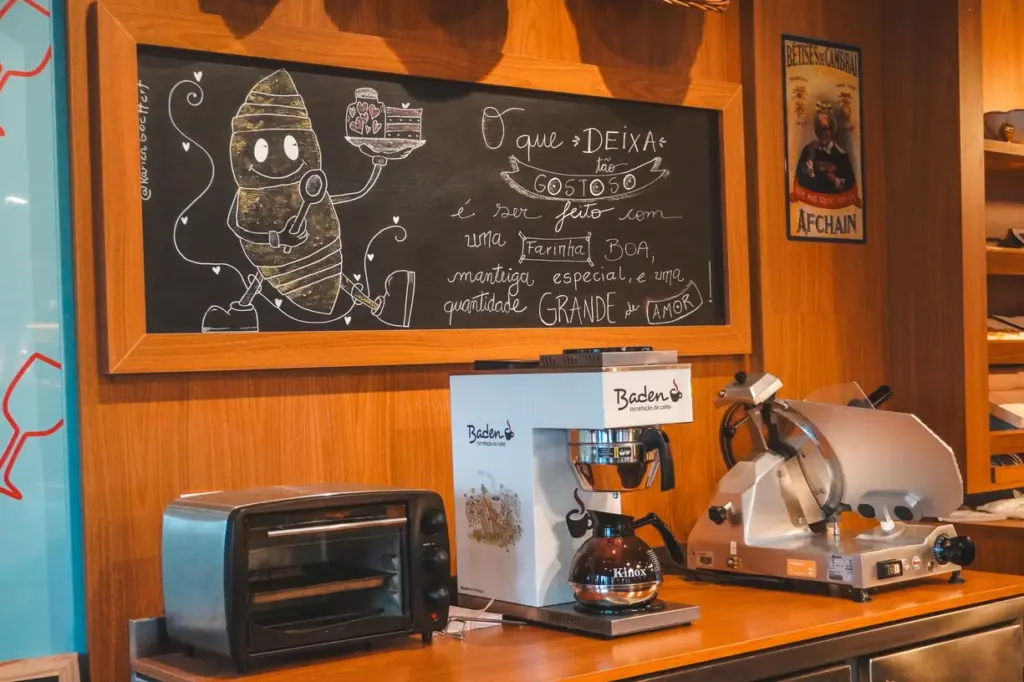 @Karien Baettert
O que DEIXA
tão
GOSTOSO
é ser feito com
uma Farinha BOA,
manteiga especial, e uma
quantidade GRANDE de AMOR!
BÊTISES DE CAMBRAI
AFCHAIN
Baden
torrefação de cafés
Baden
torrefação de cafés
Kinox